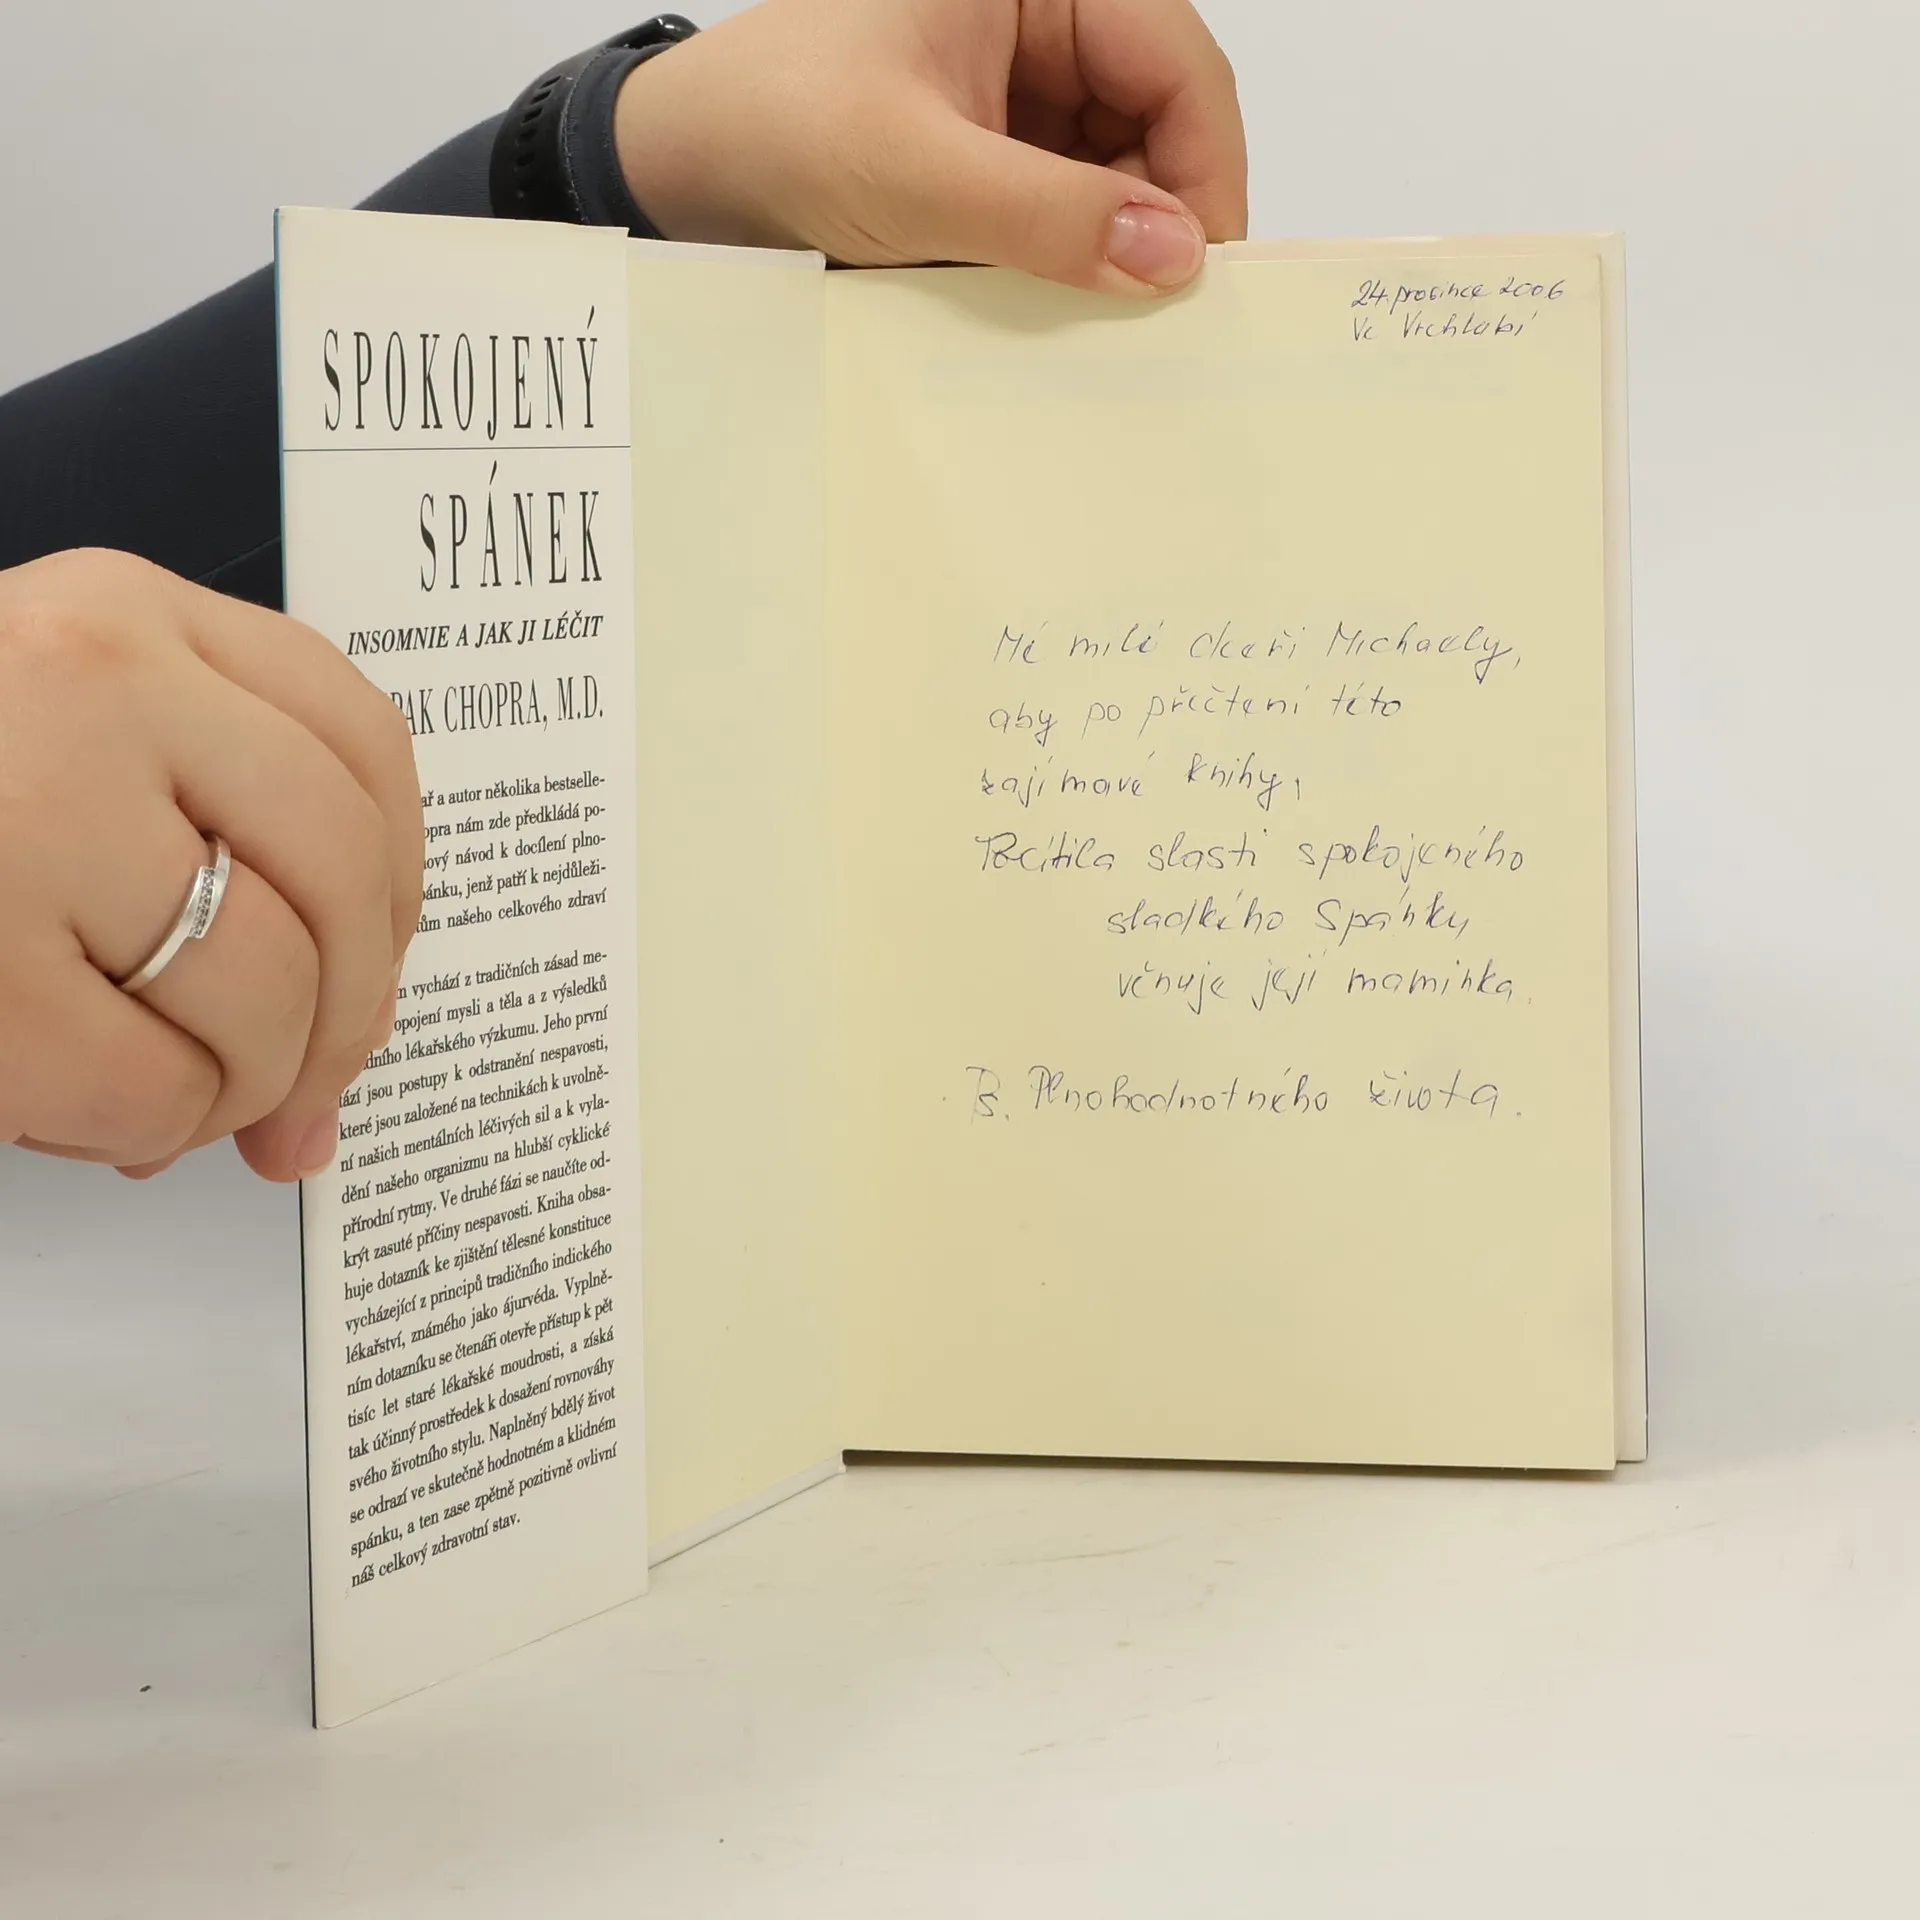 SPOKOJENÝ
SPÁNEK
INSOMNIE A JAK JI LÉČIT
PAK CHOPRA, M.D.
ař a autor několika bestselle-
opra nám zde předkládá po-
ový návod k docílení plno-
pánku, jenž patří k nejdůleži-
tům našeho celkového zdraví
m vychází z tradičních zásad me-
opojení mysli a těla a z výsledků
dního lékařského výzkumu. Jeho první
fází jsou postupy k odstranění nespavosti,
které jsou založené na technikách k uvolně-
ní našich mentálních léčivých sil a k vyla-
dění našeho organizmu na hlubší cyklické
přírodní rytmy. Ve druhé fázi se naučíte od-
krýt zasuté příčiny nespavosti. Kniha obsa-
huje dotazník ke zjištění tělesné konstituce
vycházející z principů tradičního indického
lékařství, známého jako ájurvéda. Vyplně-
ním dotazníku se čtenáři otevře přístup k pět
tisíc let staré lékařské moudrosti, a získá
tak účinný prostředek k dosažení rovnováhy
svého životního stylu. Naplněný bdělý život
se odrazí ve skutečně hodnotném a klidném
spánku, a ten zase zpětně pozitivně ovlivní
náš celkový zdravotní stav.
24. prosince 2006
Ve Vrchlabí
Mé milé dceři Michaely,
aby po přečtení této
zajímavé knihy,
Pocítila slasti spokojeného
sladkého Spánku
věnuje její maminka.
Ps. Plnohodnotného života.